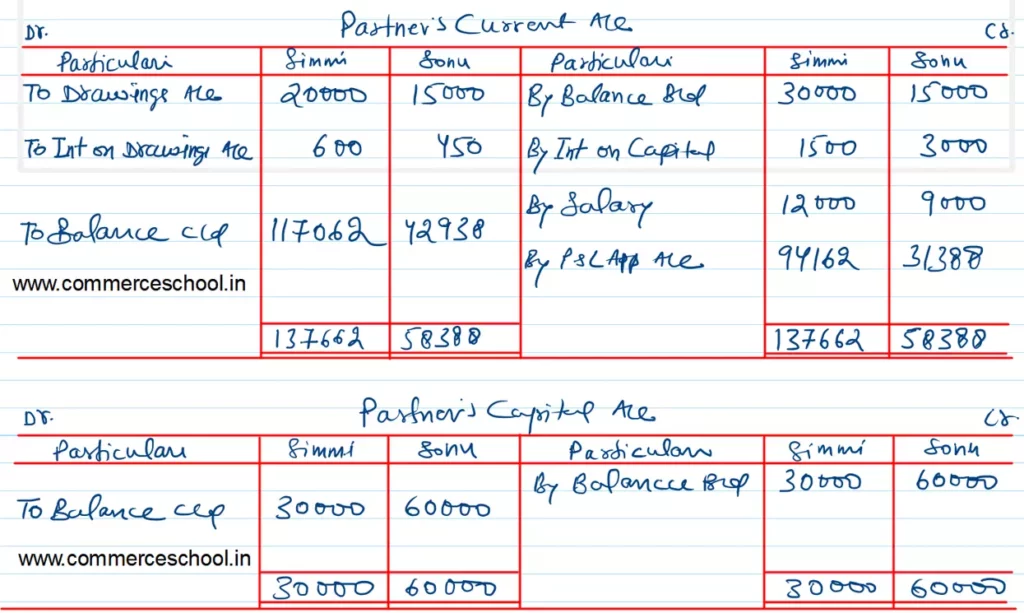 Partner's Current A/c
Dr. Cr.
Particulars Simmi Sonu Particulars Simmi Sonu
To Drawings A/c 20000 15000 By Balance B/d 30000 15000
To Int on Drawings A/c 600 450 By Int on Capital 1500 3000
By Salary 12000 9000
To Balance c/d 117062 42938
By P&L App A/c 94162 31388
www.commerceschool.in
137662 58388 137662 58388
Partner's Capital A/c
Dr. Cr.
Particulars Simmi Sonu Particulars Simmi Sonu
By Balance B/d 30000 60000
To Balance c/d 30000 60000
www.commerceschool.in
30000 60000 30000 60000